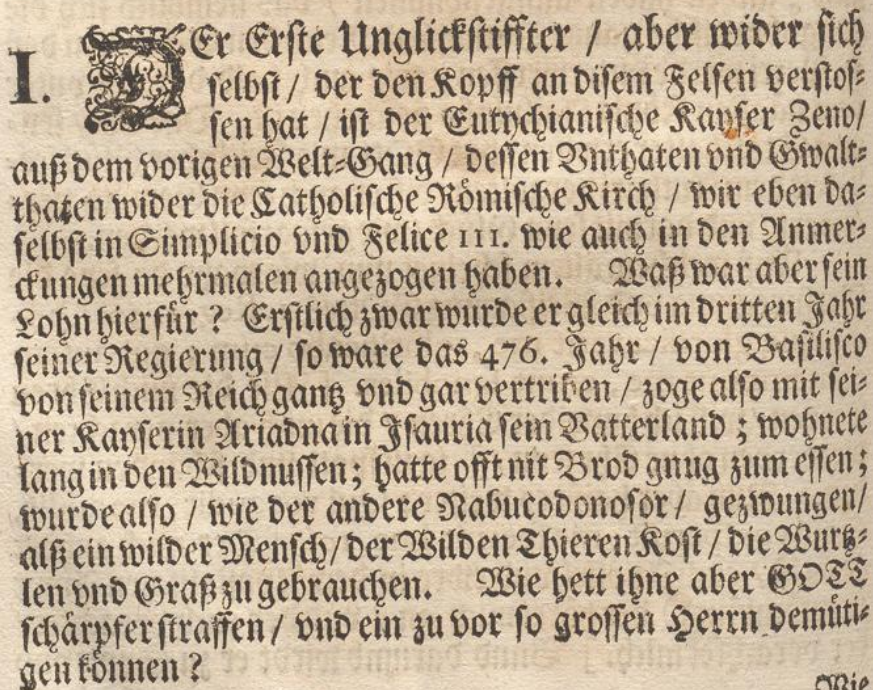 I. DEr Erste Unglickstiffter / aber wider sich
selbst / der den Kopff an disem Felsen verstos-
sen hat / ist der Eutychianische Kayser Zeno /
auß dem vorigen Welt-Gang / dessen Vnthaten vnd Gwalt-
thaten wider die Catholische Römische Kirch / wir eben da-
selbst in Simplicio vnd Felice III. wie auch in den Anmer-
ckungen mehrmalen angezogen haben. Waß war aber sein
Lohn hierfür ? Erstlich zwar wurde er gleich im dritten Jahr
seiner Regierung / so ware das 476. Jahr / von Basilisco
von seinem Reich gantz vnd gar vertriben / zoge also mit sei-
ner Kayserin Ariadna in Isauria sein Vatterland ; wohnete
lang in den Wildnussen ; hatte offt nit Brod gnug zum essen ;
wurde also / wie der andere Nabucodonosor / gezwungen /
alß ein wilder Mensch / der Wilden Thieren Kost / die Wurtz-
len vnd Graß zu gebrauchen. Wie hett ihne aber GOTT
schärpfer straffen / vnd ein zu vor so grossen Herrn demüti-
gen können ?
Wie